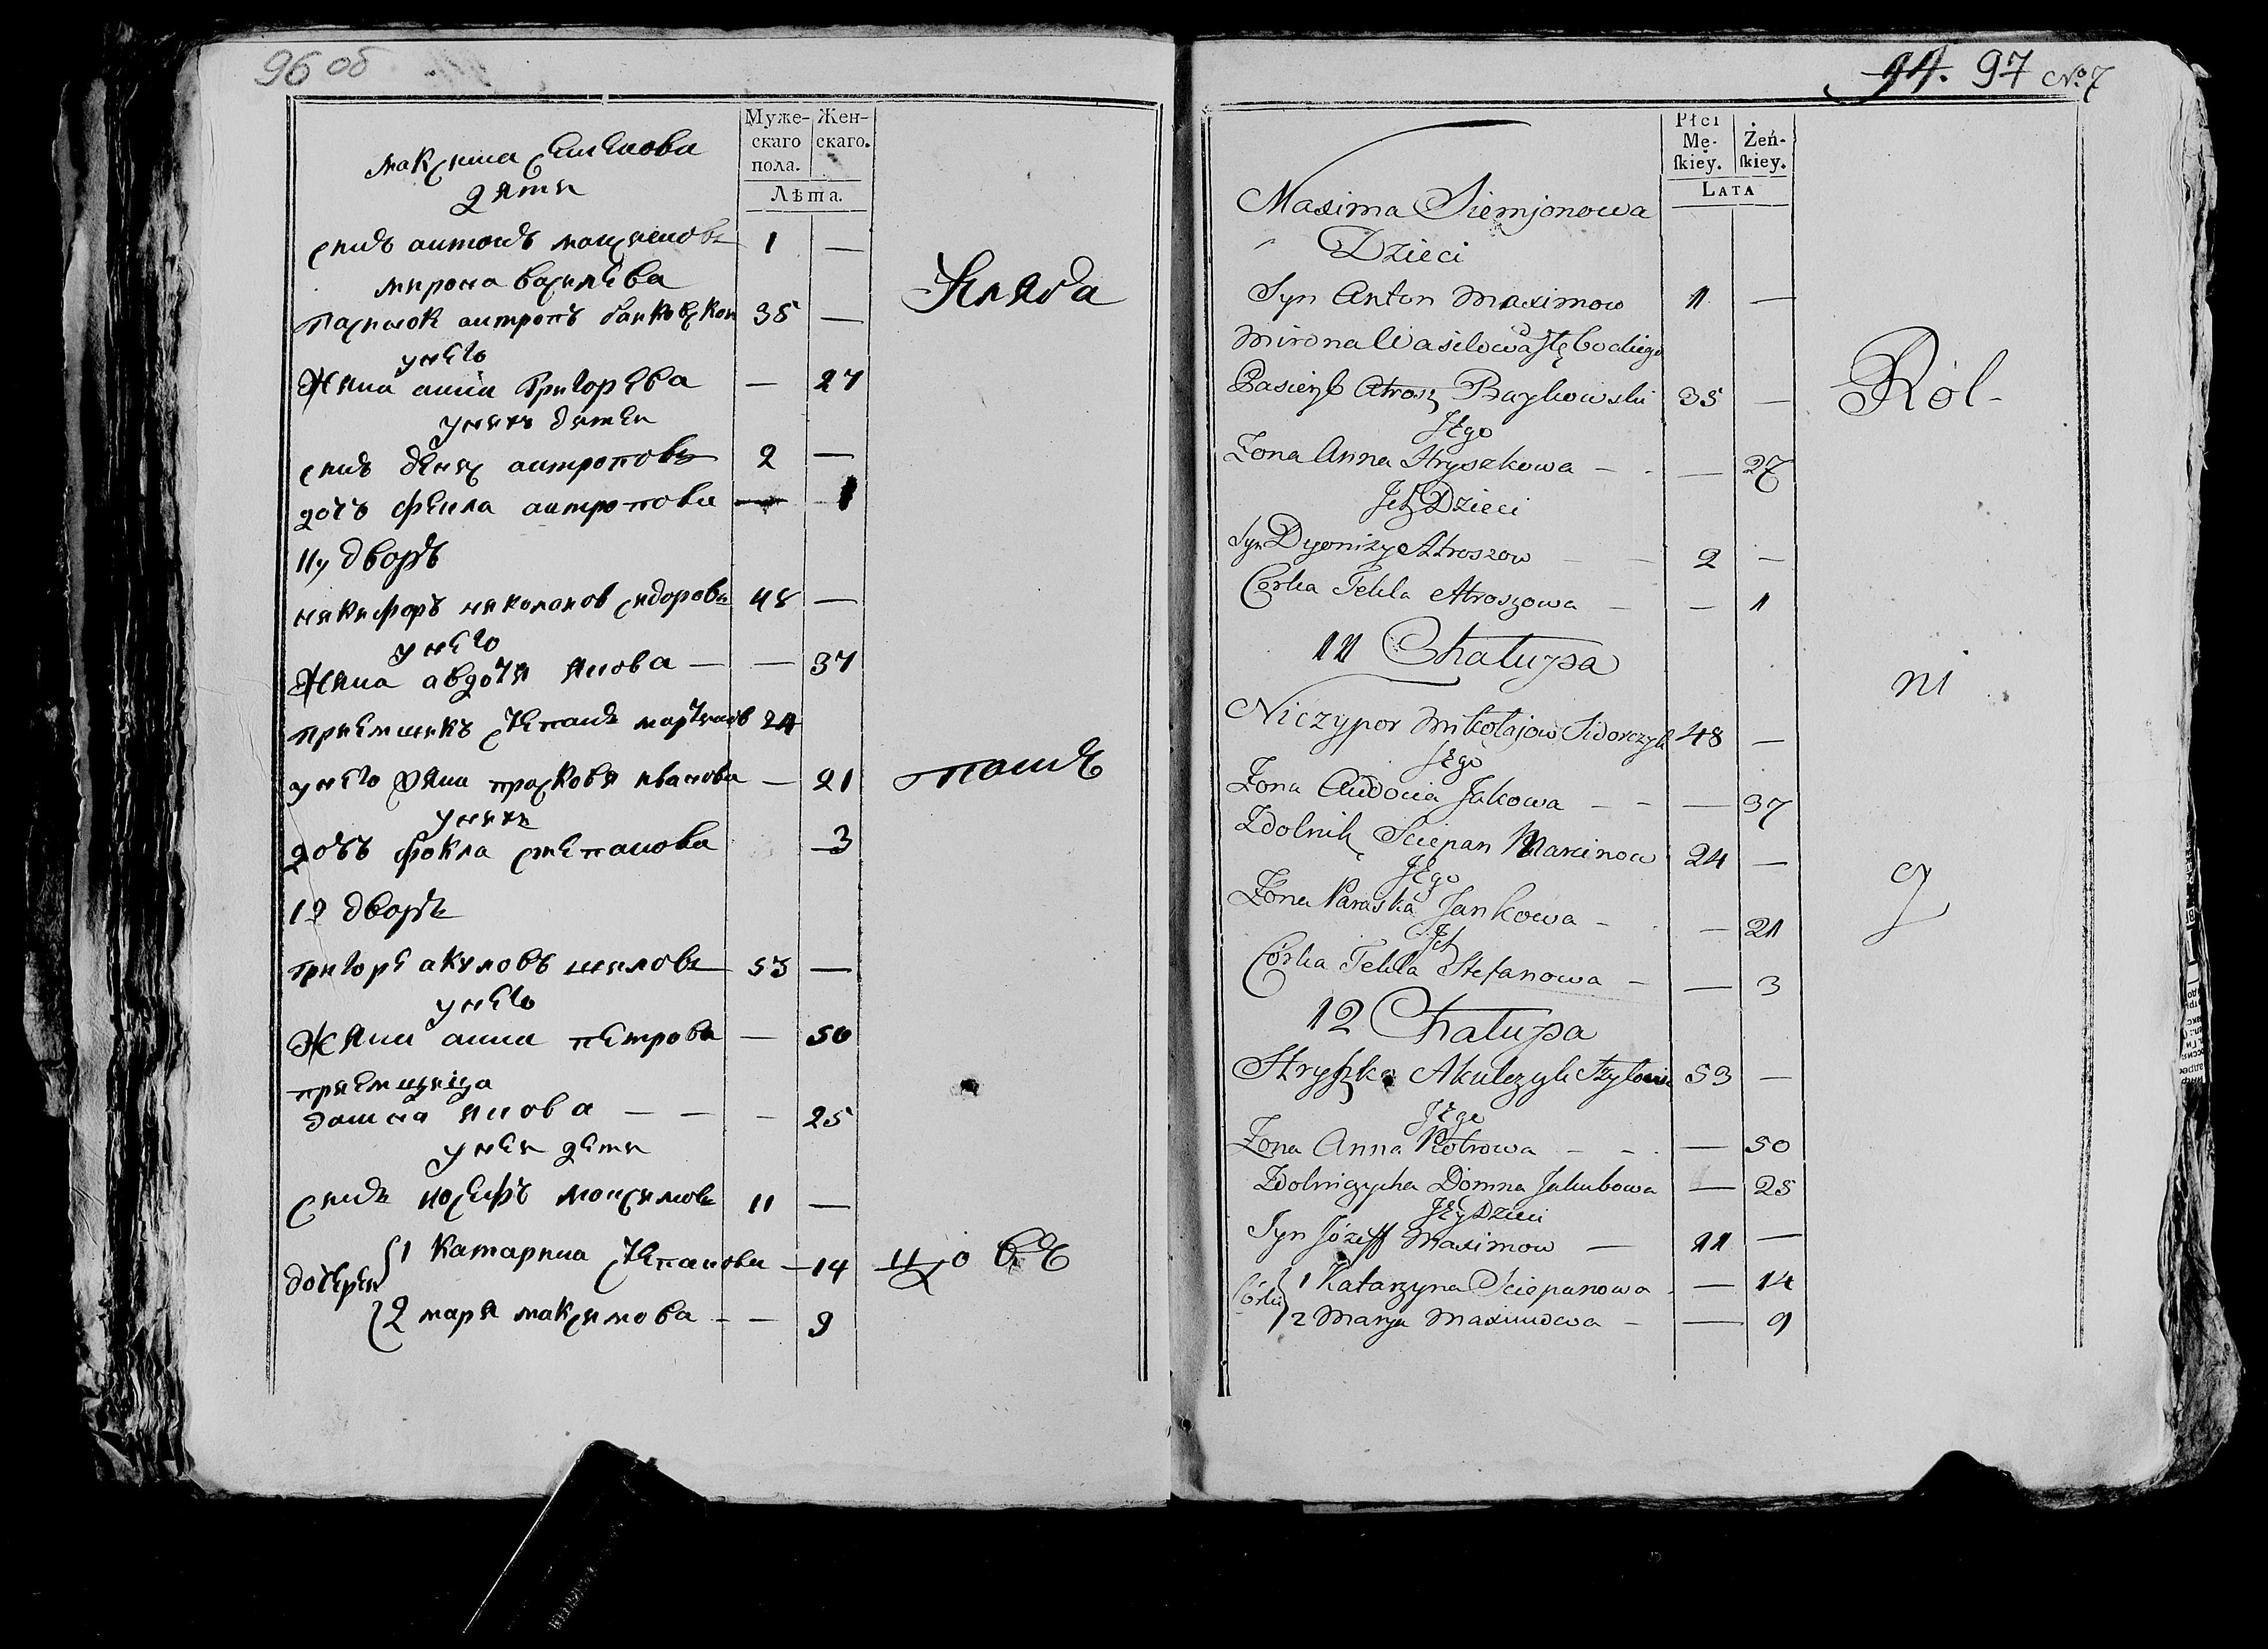 96 об
Муже-
скаго
пола.
Жен-
скаго.
Лѣта.
дяти
сынъ антонъ 1 —
мирона василева
35 —
унего
Жяна анна Григорева — 27
унихъ дяти
сынъ денис антроповъ 2 —
дочъ антропова — 1
11й дворъ
никифоръ николаев сидоровъ 48 —
унего
Жяна авдотя янова — — 37
приемникъ степанъ 24
унего жяна просковя иванова — 21
унихъ
дочъ фокла степанова 3
12 дворъ
григоре акуловъ шиловъ 53 —
унего
Жяна анна петрова — 50
приемница
домна янова — — — 25
унеи дети
сынъ иосифъ максимовъ 11 —
дочери 1 катарина степанова — 14
2 маря максимова - — 9
94. 97 No 7
Płci
Mę-
ſkiey.
Żeń-
ſkiey.
LATA
Maxima Siemjonowa
Dzieci
Syn Anton Maximow 1 —
Mirona Wasilowa
Atrosz Baykowski 35 —
Jego
Żona Anna Hryszkowa — - — 27
Ich Dzieci
Syn Dyonizy Atroszow — — 2 —
Córka Tekla Atroszowa — — 1
11 Chałupa
Niczypor Mikołajow Sidorczyk 48 —
Jego
Żona Audocia Jakowa — - — 37
Zdolnik Sciepan 24 —
Jego
Żona Paraska Jankowa - — 21
Ich
Córka Tekla Stefanowa — — 3
12 Chałupa
Hryszka Akulczyk 53 —
Jego
Żona Anna Piotrowa — - . — 50
Zdolniczycha Domna Jakubowa — 25
Jey Dzieci
Syn Józeff Maximow — 11 —
Córki 1 Katarzyna Sciepanowa - — 14
2 Marja Maximowa — — 9
Rol-
ni